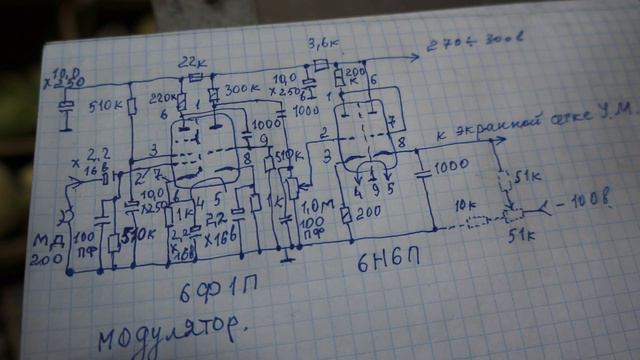 22к
3,6к
270÷300в
10,0
х250
510к
220к
6
1
300к
10,0
х250
в
1000
200
к
1
6
1000
7
9
2
8
к экранной сетке У.М.
х 2,2
16в
3
2
7
8
510к
3
4 9 5
1000
51к
10,0
х250
6
4
5
1к
2,2
х16в
2,2
х16в
1к
1,0м
100
пф
200
10к
51к
-100в
МД
200
100
пф
510к
6Ф1П
6Н6П
МОДУЛЯТОР.